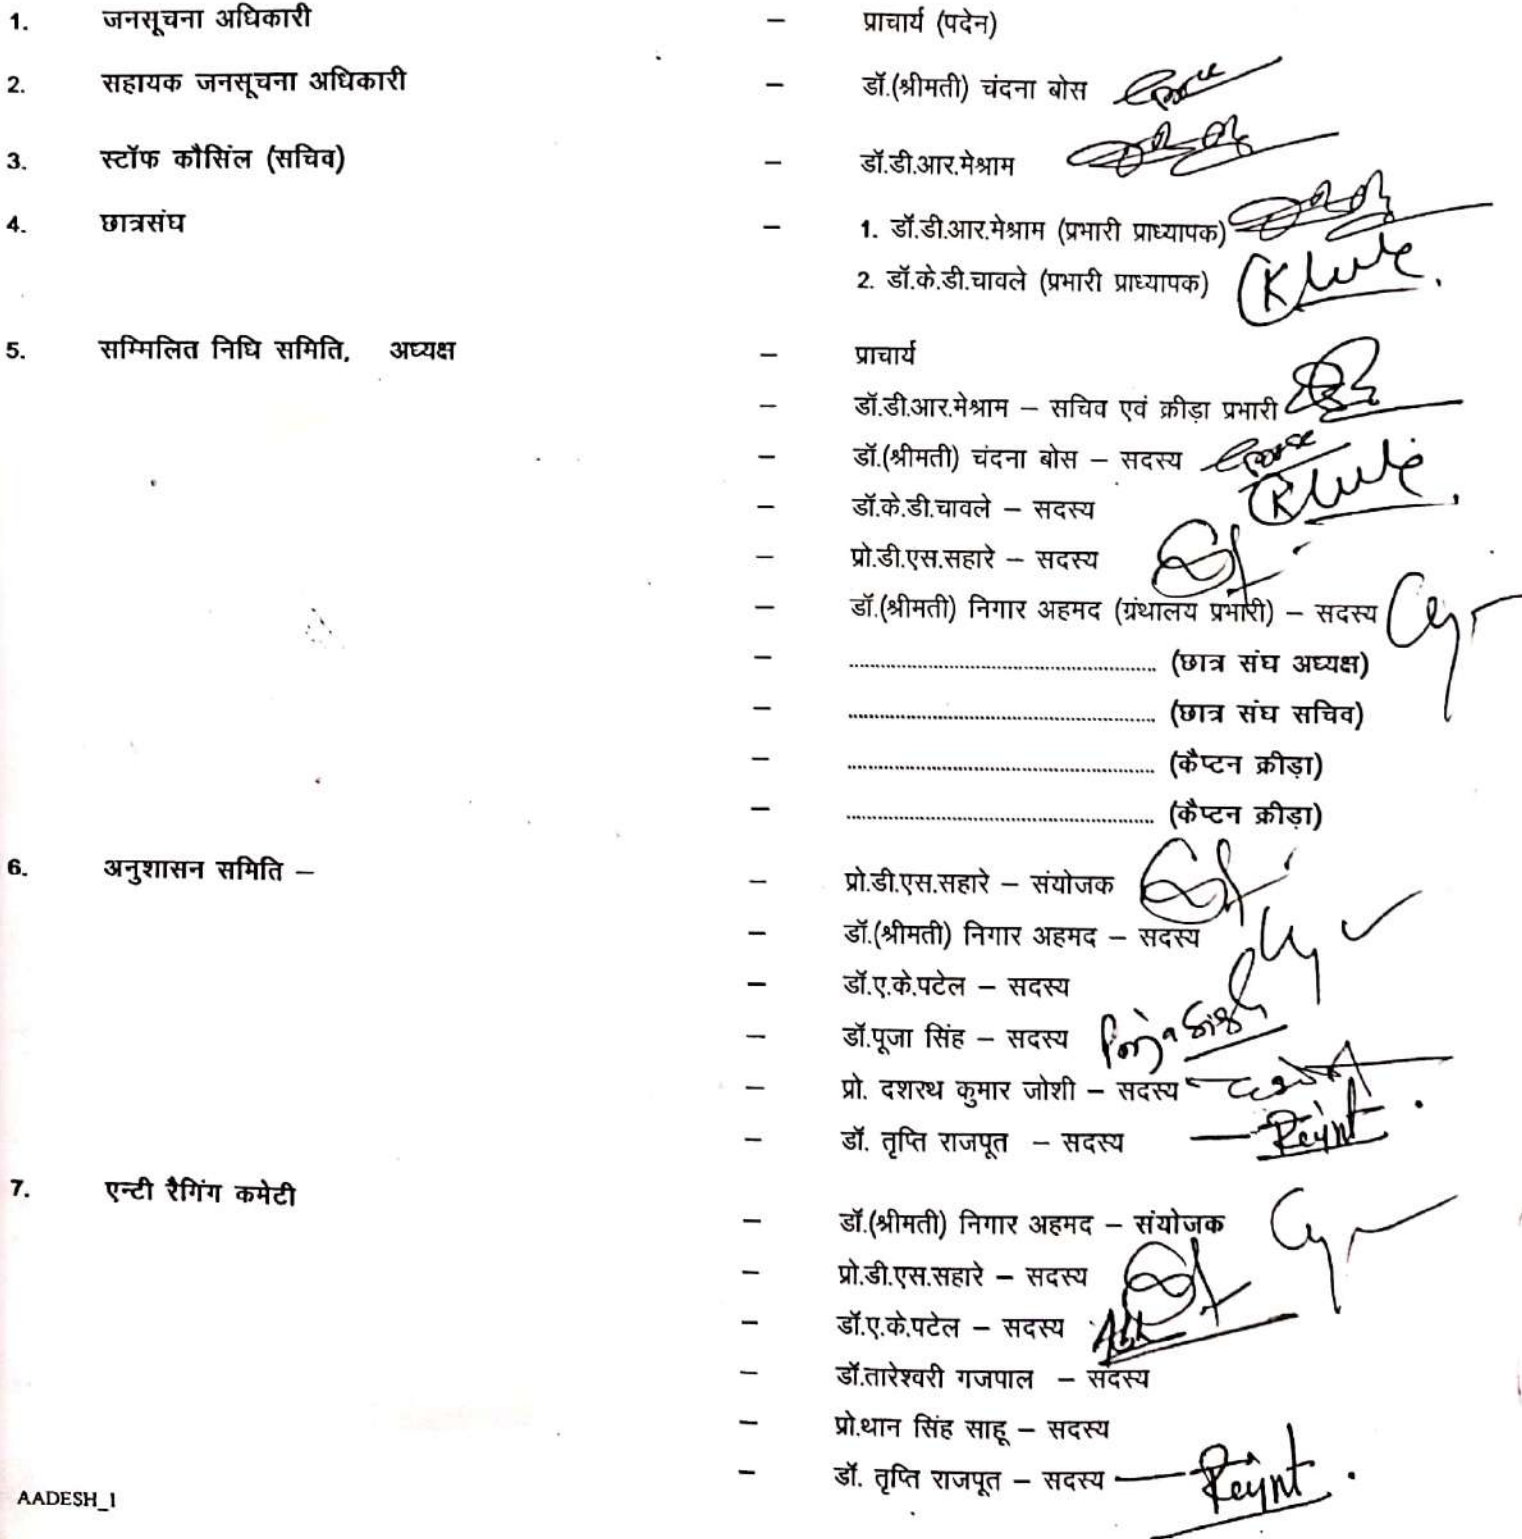 1. जनसूचना अधिकारी – प्राचार्य (पदेन)
2. सहायक जनसूचना अधिकारी – डॉ.(श्रीमती) चंदना बोस
3. स्टॉफ कौसिंल (सचिव) – डॉ.डी.आर.मेश्राम
4. छात्रसंघ – 1. डॉ.डी.आर.मेश्राम (प्रभारी प्राध्यापक)
2. डॉ.के.डी.चावले (प्रभारी प्राध्यापक)
5. सम्मिलित निधि समिति, अध्यक्ष – प्राचार्य
– डॉ.डी.आर.मेश्राम – सचिव एवं क्रीड़ा प्रभारी
– डॉ.(श्रीमती) चंदना बोस – सदस्य
– डॉ.के.डी.चावले – सदस्य
– प्रो.डी.एस.सहारे – सदस्य
– डॉ.(श्रीमती) निगार अहमद (ग्रंथालय प्रभारी) – सदस्य
– ............................................................ (छात्र संघ अध्यक्ष)
– ............................................................ (छात्र संघ सचिव)
– ............................................................ (कैप्टन क्रीड़ा)
– ............................................................ (कैप्टन क्रीड़ा)
6. अनुशासन समिति –
– प्रो.डी.एस.सहारे – संयोजक
– डॉ.(श्रीमती) निगार अहमद – सदस्य
– डॉ.ए.के.पटेल – सदस्य
– डॉ.पूजा सिंह – सदस्य
– प्रो. दशरथ कुमार जोशी – सदस्य
– डॉ. तृप्ति राजपूत – सदस्य
7. एन्टी रैगिंग कमेटी
– डॉ.(श्रीमती) निगार अहमद – संयोजक
– प्रो.डी.एस.सहारे – सदस्य
– डॉ.ए.के.पटेल – सदस्य
– डॉ.तारेश्वरी गजपाल – सदस्य
– प्रो.थान सिंह साहू – सदस्य
– डॉ. तृप्ति राजपूत – सदस्य
AADESH_1